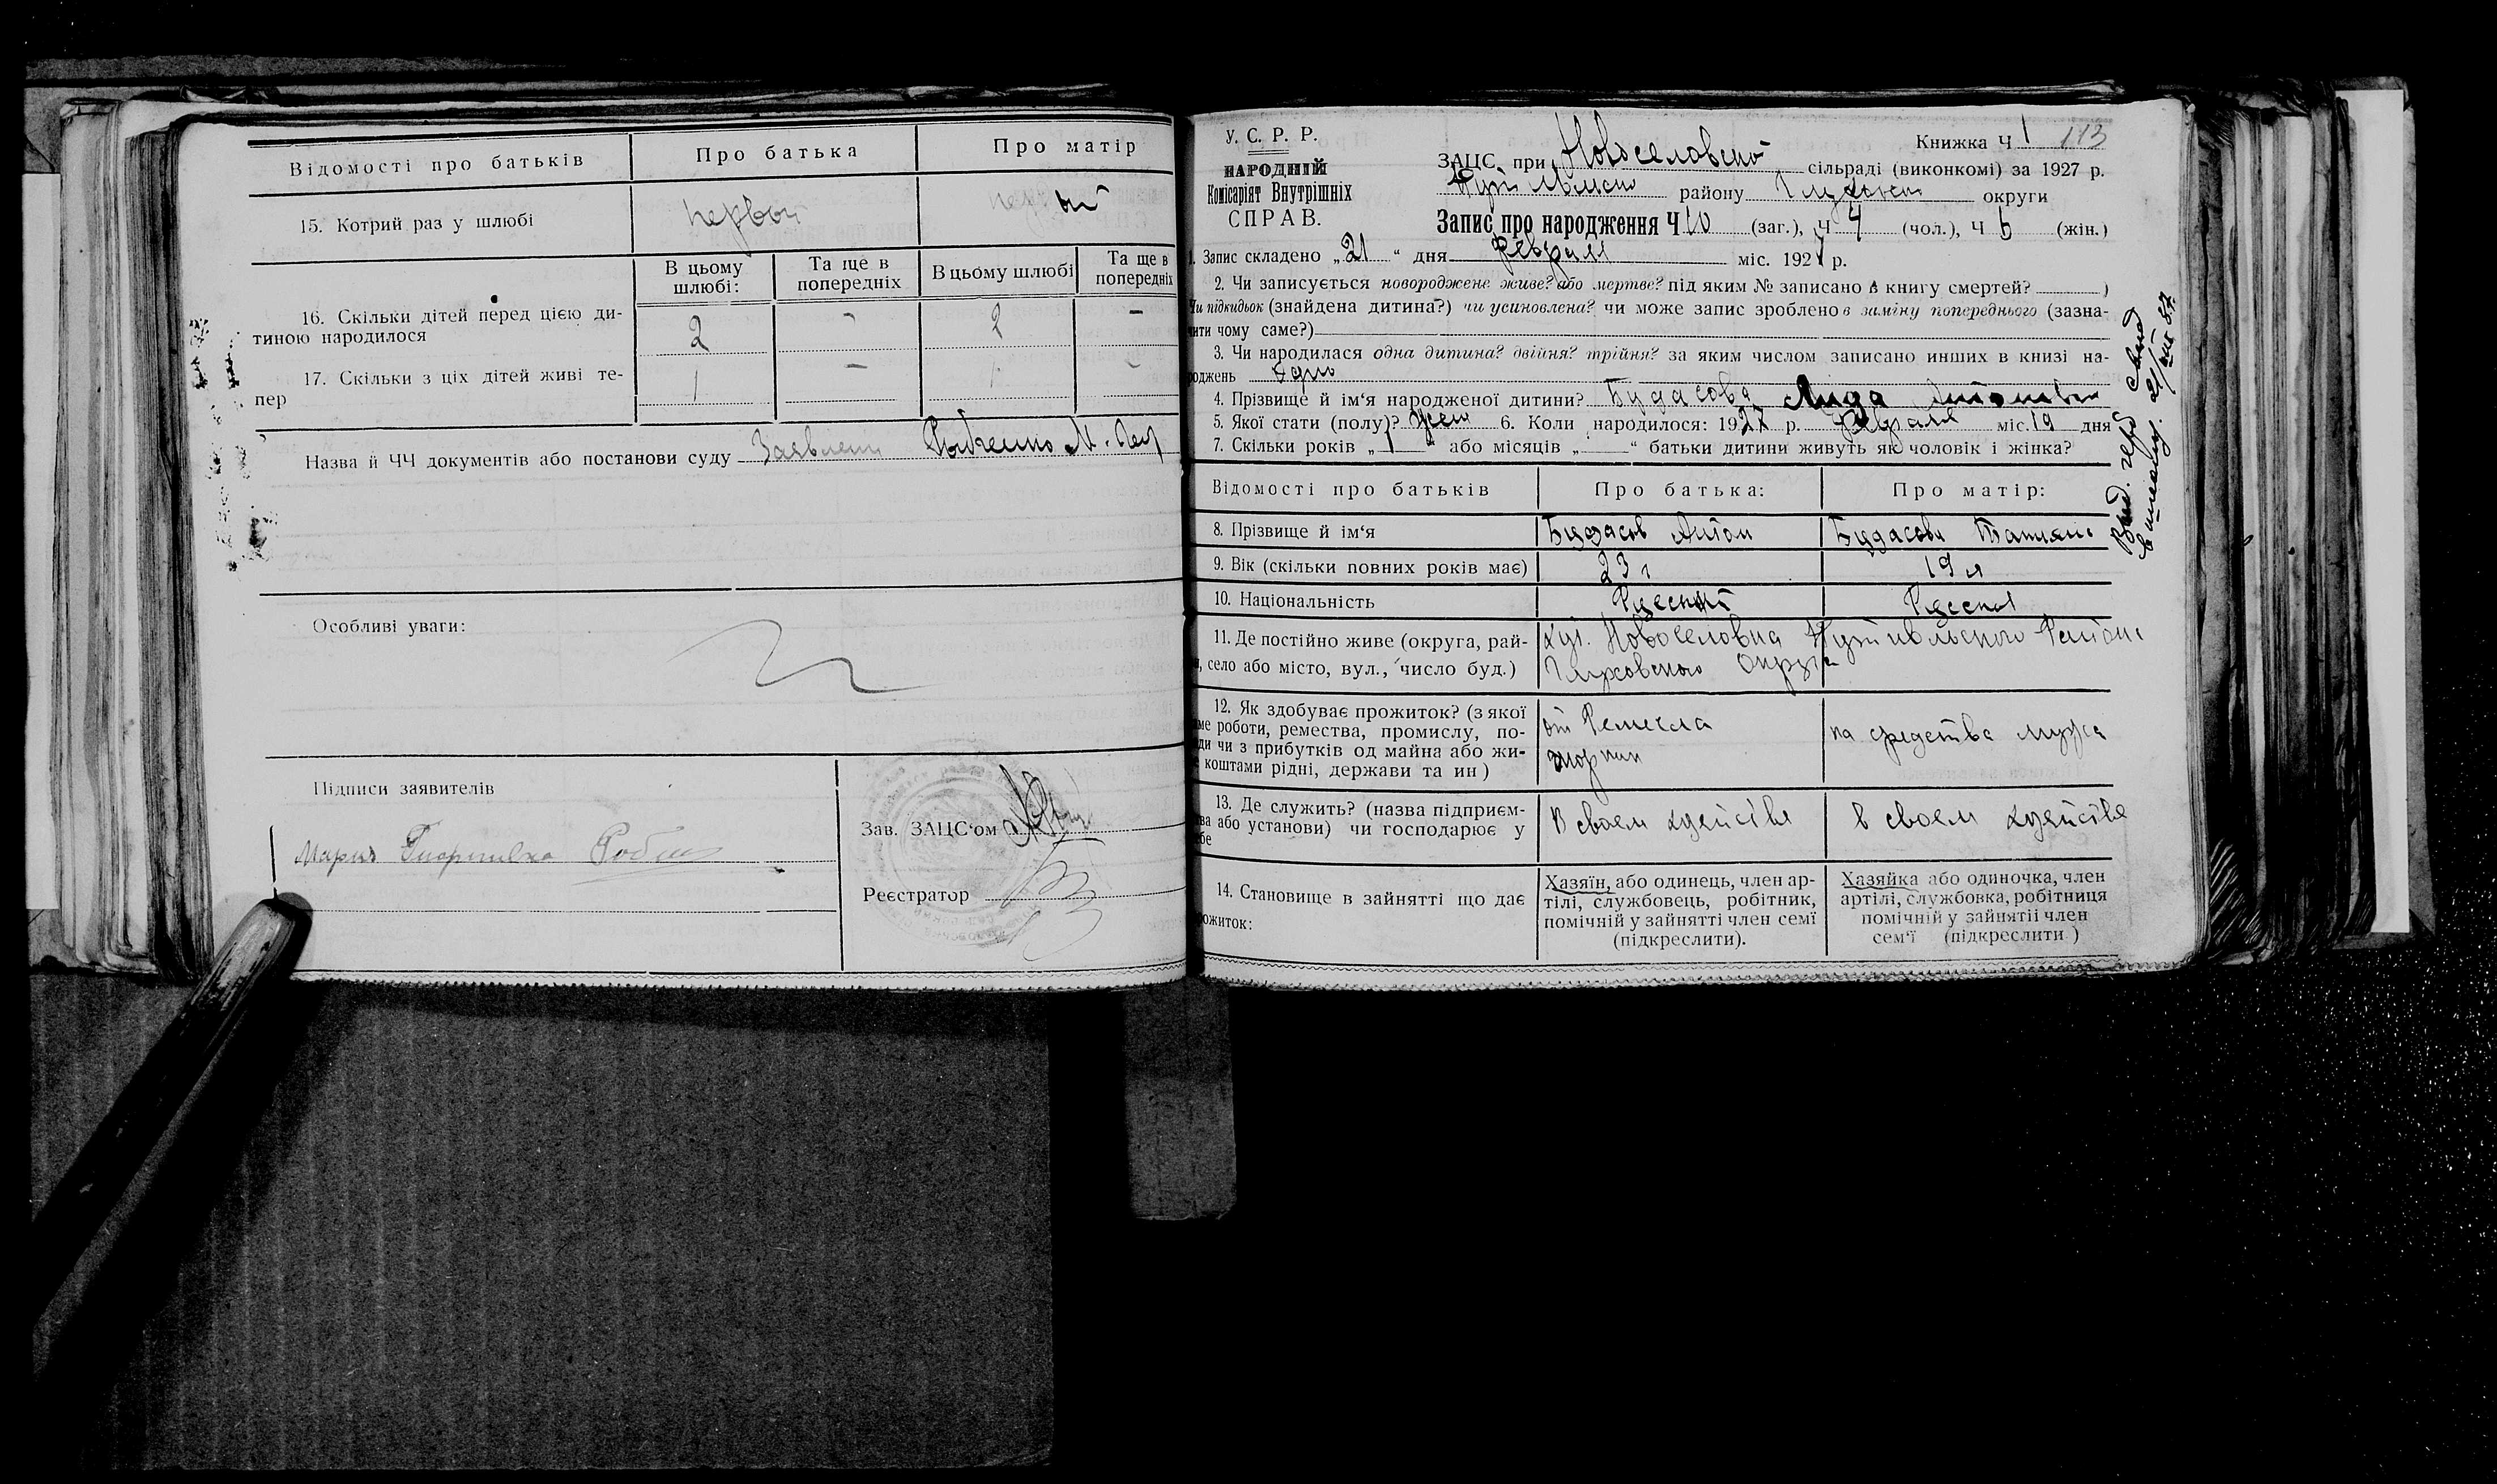 Відомості про батьків
Про батька
Про матір
15. Котрий раз у шлюбі
первый
В цьому шлюбі:
Та ще в попередніх
В цьому шлюбі
Та ще в попередніх
16. Скільки дітей перед цією ди-
тиною народилося
2 - 2 -
17. Скільки з ціх дітей живі те-
пер
1 - 1 -
Назва й ЧЧ документів або постанови суду
Особливі уваги:
Підписи заявителів
Зав. ЗАЦС'ом
Мария
Реєстратор
У. С. Р. Р.
НАРОДНІЙ
Комісаріят Внутрішніх
СПРАВ.
Книжка Ч 1 113
ЗАЦС при Новоселовской сільраді (виконкомі) за 1927 р.
району округи
Запис про народження Ч 10 (заг.), Ч 4 (чол.), Ч 6 (жін.)
1. Запис складено „21“ дня февраля міс. 1927 р.
2. Чи записується новороджене живе? або мертве? під яким № записано в книгу смертей? )
Чи підкидьок (знайдена дитина?) чи усиновлена? чи може запис зроблено в заміну попереднього (зазна-
чити чому саме?)
3. Чи народилася одна дитина? двійня? трійня? за яким числом записано инших в книзі на-
роджень одно
4. Прізвище й ім'я народженої дитини? Будасова Лида Антоновна
5. Якої стати (полу)? жен 6. Коли народилося: 1927 р. февраля міс. 19 дня
7. Скільки років „1“ або місяців „ “ батьки дитини живуть як чоловік і жінка?
Відомості про батьків
Про батька:
Про матір:
8. Прізвище й ім'я
Будасов Антон
Будасова Татьяна
9. Вік (скільки повних років має)
23 г
19 л
10. Національність
Русский
Русская
11. Де постійно живе (округа, рай-
, село або місто, вул., число буд.)
хут. Новоселовка Путивльского Района
Глуховского Округа
12. Як здобуває прожиток? (з якої
ме роботи, ремества, промислу, по-
ди чи з прибутків од майна або жи-
е коштами рідні, держави та ин )
от Ремесла
на средства мужа
13. Де служить? (назва підприєм-
ва або установи) чи господарює у
ебе
В своем хозяйстве
В своем хозяйстве
14. Становище в зайнятті що дає
рожиток:
Хазяїн, або одинець, член ар-
тілі, службовець, робітник,
помічній у зайнятті член семї
(підкреслити).
Хазяйка або одиночка, член
артілі, службовка, робітниця
помічній у зайнятіі член
сем'ї (підкреслити )